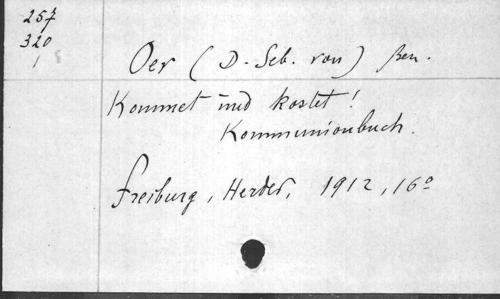 257
320
Oer (D. Seb. von) Ben.
Kommet und kostet!
Kommunionbuch.
Freiburg, Herder, 1912, 16°